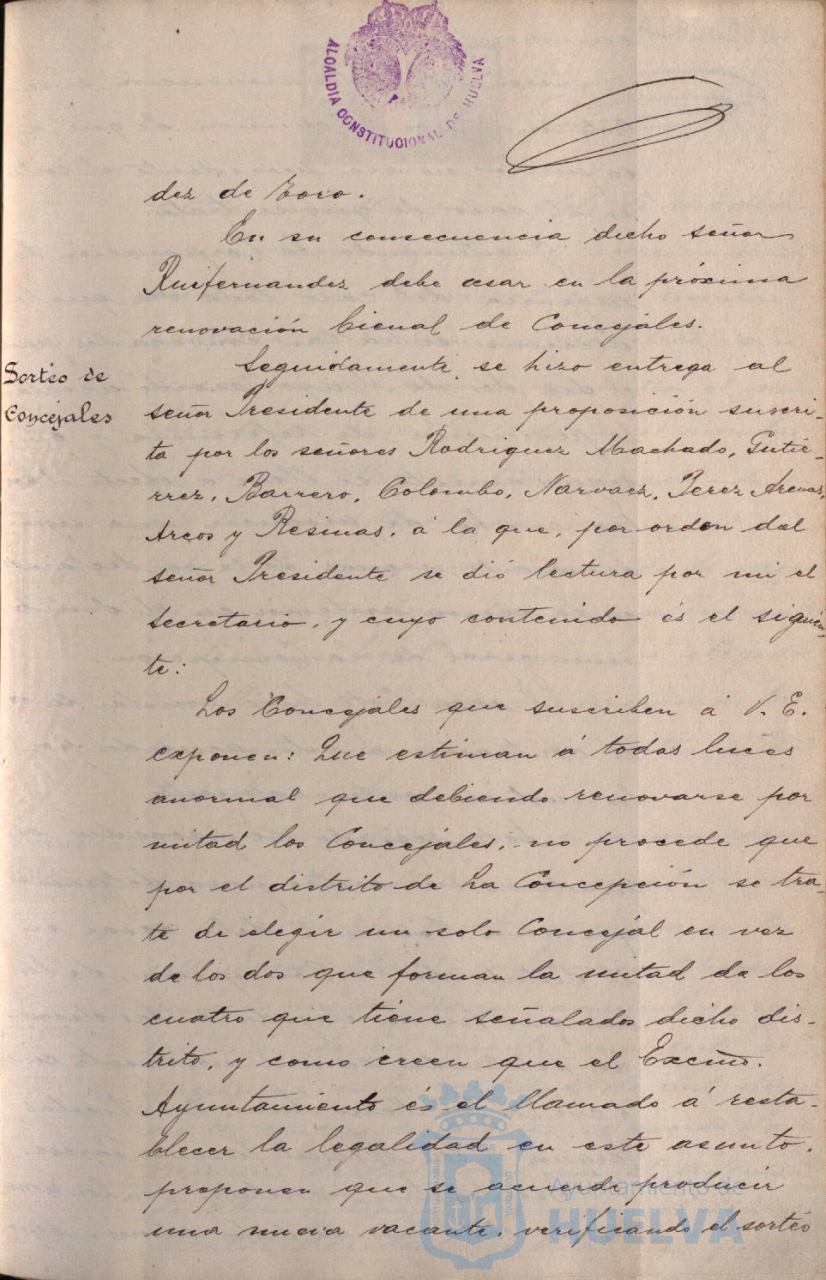 ALCALDIA CONSTITUCIONAL DE HUELVA
dez de Toro.
En su consecuencia dicho señor
Ruifernandez debe cesar en la próxima
renovación bienal de Concejales.
Sortéo de
Concéjales
Seguidamente se hizo entrega al
señor Presidente de una proposición suscri-
ta por los señores Rodriguez Machado, Gutié-
rrez, Barrero, Colombo, Narvaez, Perez Arenas,
Arcos y Resinas, á la que, por orden del
señor Presidente se dió lectura por mi el
Secretario, y cuyo contenido és el siguien-
te:
Los Concejales que suscriben á V. E.
exponen: Que estiman á todas luces
anormal que debiendo renovarse por
mitad los Concejales, no procede que
por el distrito de La Concepción se tra-
te de elegir un solo Concejal en vez
de los dos que forman la mitad de los
cuatro que tiene señalados dicho dis-
trito, y como creen que el Excmo.
Ayuntamiento és el llamado á resta-
blecer la legalidad en este asunto,
proponen que se acuerde producir
una nueva vacante, verificando el sortéo
Ayuntamiento de
HUELVA